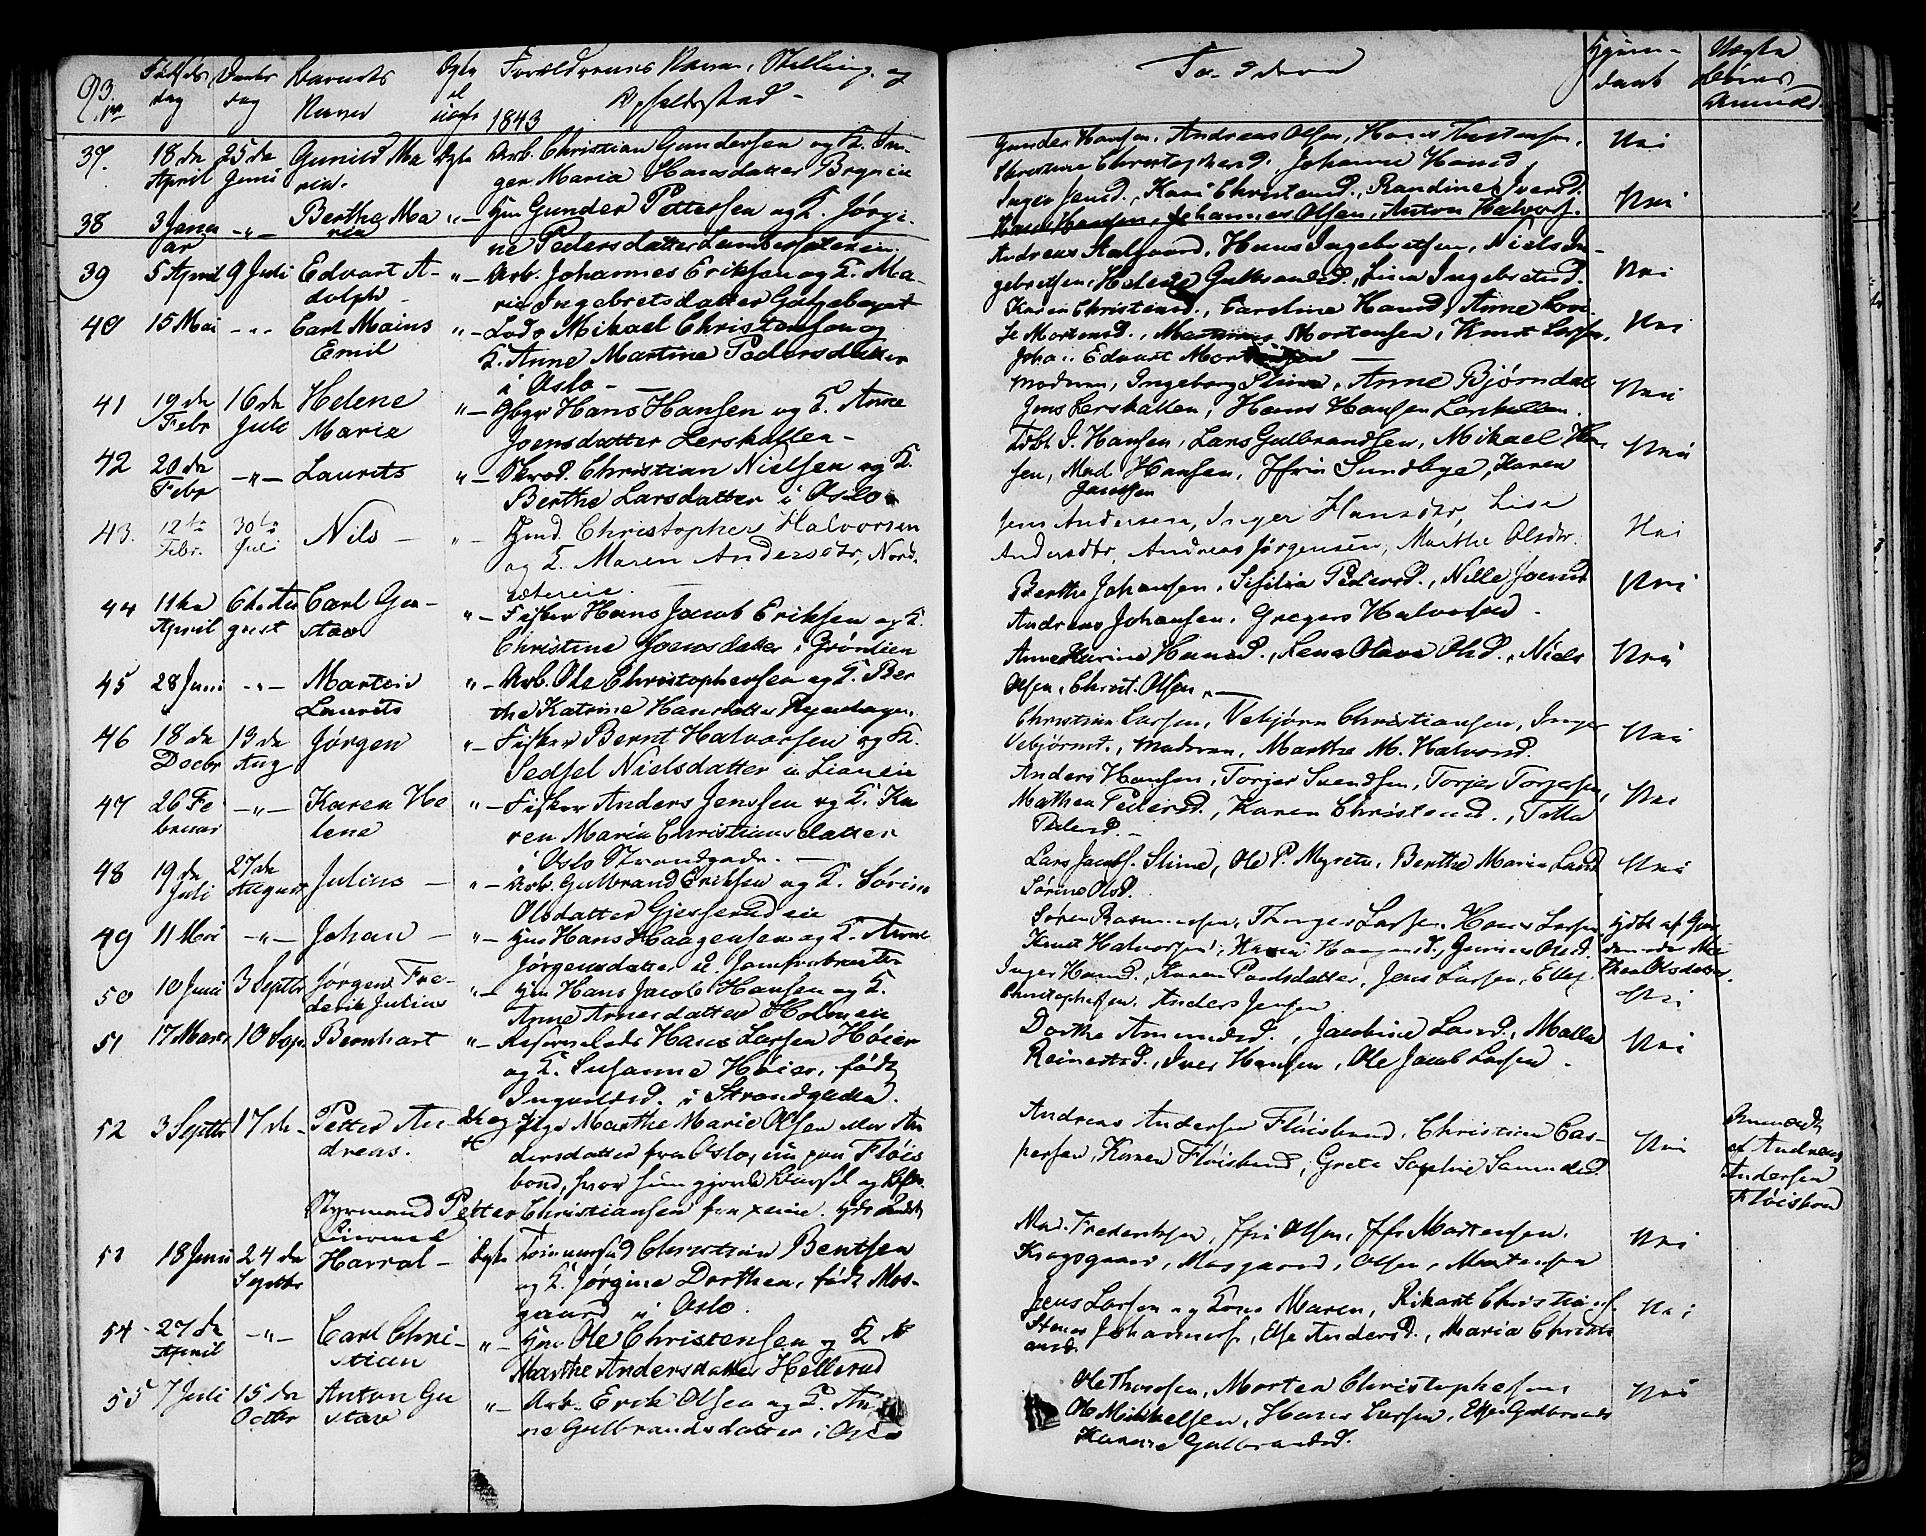 93.
Fødsels dag
Daabs dag
Barnets Navn
Ægte el uægte
Forældrenes Navn, Stilling og Opholdssted
1843
37. 18 de April 25 de Juni Gunild Maria. Ægte Arb. Christian Gundersen og K. In-
ger Maria Hansdatter Bryn
38 3 Januar -"- Berthe Maria "- Hm Gunder Pettersen og K. Jørgi-
ne Pedersdatter
39 5 April 9 Juli Edvart Adolph "- Arb. Johannes Eriksen og K. Ma-
rie Ingebretsdatter Galgeberget
40 15 Mai -"- Carl Mains Emil "- Lods Mikael Christensen og
K. Anne Martine Pedersdatter
i Oslo -
41 19 de Febr 16 de Juli Helene Marie "- Gbgr Hans Hansen og K. Anne
Joensdatter Lerskallen -
42 20 de Febr -"- Laurits "- Skrod. Christian Nielsen og K.
Berthe Larsdatter i Oslo
43. 12te Febr. 30te Juli Nils - "- Hmd. Christopher Halvorsen
og K. Maren Andersdtr, Nord-
44 11te April 6te August Carl Gustav "- Fisker Hans Jacob Eriksen og K.
Christine Joensdatter i Grønlien
45 28 Juni -"- Martin Laurits "- Arb. Ole Christophersen og K. Ber
the Katrine Hansdatter Ryenhagen.
46 18 de Decbr 13 de Aug Jørgen "- Fisker Bernt Halvorsen og K.
Sedsel Nielsdatter i Lianeie
47 26 Februar -"- Karen Helene "- Fisker Anders Jenssen og K. Ka
ren Maria Christiansdatter
i Oslo Strandgade. -
48 19 de Juli 27 de August Julius - "- Arb. Gulbrand Eriksen og K. Sørine
Olsdatter Gjesserudeie
49 11 Mai -"- Johan - "- Hm Hans Haagensen og K. Anne
Jørgensdatter i Jomfrubraaten
50 10 Juni 3 Septbr Jørgen Frederik Julius "- Hm Hans Jacob Hansen og K.
Anne Arnesdatter Holmen
51 17 Marts 10 Sep. Bernhart "- Reservelods Hans Larsen Høier
og K. Susanne Høier, født
Ingvaldsd. i Strandgaden.
52 3 Septbr 17 de - Petter Andreas. Uægte Pige Marthe Marie Olsen eller An
dersdatter fra Oslo, nu paa Fløis
bond, hvor hun gjorde Barsel og
Styrmand Petter Christiansen fra
53 18 Juni 24 de Septbr Harral - Ægte Tømmersvd Christian Bentsen
og K. Jørgine Dorthea, født Mos-
gaard i Oslo.
54 - 27 de April -"- Carl Christian "- Hm Ole Christensen og K
Marthe Andersdatter Hellerud
55 7 Juli 15 de Octbr Anton Gustav "- Arb. Erik Olsen og K. An
ne Gulbrandsdatter i Oslo
Faddere
Hjemmedaabt
Uægte Børns Anmeld.
Gunder Hansen, Andreas Olsen, Hans
Christophersd. Johanne Hansd, Nei
Inger Jensd., Kari Christensd., Randine Iversd. Nei
Hans Hansen, Johannes Olsen, Anton Halvors.
Andreas Aalgaard, Hans Ingebretsen, Niels In-
gebretsen, Helene Gulbrandsd., Lina Ingebretsd. Nei
Karen Christensd., Caroline Hansd, Anne Lovi-
se Mortensd., Martinus Mortensen, Knut Larsen, Nei
Joha.. Edvart Mortensen -
Moderen, Ingeborg Stine, Anne Bjørndal Nei
Jens Lerskallen, Hans Hansen Lerskallen.
I. Hansen, Lars Gulbrandsen, Mikael Han
sen, Mad Hansen, Jfru Sundbye, Karen Nei
Jenssen
Jens Andersen, Inger Hansdtr, Lise Nei
Andersdtr, Andreas Jørgensen, Marthe Olsdtr.
Berthe Johansen, Sesilia Pedersd., Nille Joensd Nei
Andreas Johansen, Gregers Halvorsen -
Anne Karine Hansd., Lena Olava Olsd., Niels Nei
Olsen, Christ. Olsen, -
Christian Larsen, Vebjørn Christiansen, Inger Nei
Vebjørnsd., Moderen, Marthe M. Halvorsd.
Anders Hansen, Torjer Svendsen, Torjer Torjersen,
Mathea Pedersd., Karen Christensd., Nei
Pedersd. -
Lars Jacobs. Stime, Ole P. Myrete, Berthe Maria Larsd Nei
Sørine Olsd.
Søren Rasmussen, Larsen, Hans Larsen Hjdbt af
Knut Halvorsen, Haagensd., Gurine Olsd. thea Olsdatter.
Inger Hansd., Karen Paulsdatter, Jens Larsen, Ellef
Christophersen, Anders Jensen Nei
Dorthe Amundsd., Jacobine Larsd., Malla Nei
Reinertsd., Iver Hansen, Ole Jacob Larsen -
Andreas Andersen Fløisbond, Christian Cas-
persen, Karen Fløisbond, Grete Sophie Samuelsd Nei
Anmeldt af Andreas Andersen Fløisbon
Mad. Frederiksen, Jfru Olsen, Jfr. Mortensen, Nei
Krogsgaard, Mosgaard, Olsen, Mortensen
Jens Larsen og Kone Maren, Rikart Christians. Nei
Johannes., Else Andersd., Maria Christi
ansd.
Ole Thorsen, Morten Christophersen Nei
Ole Mikkelsen, Hans Larsen, Else Gulbrands
Karine Gulbrandsd.